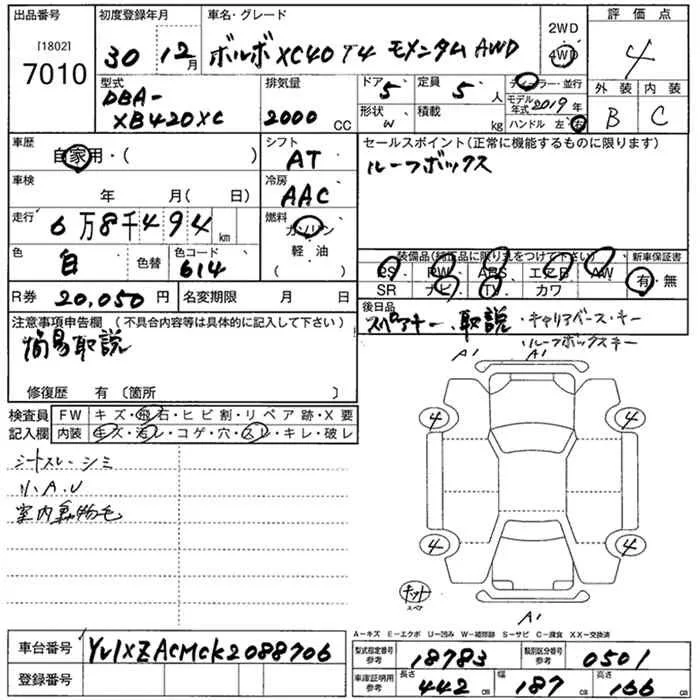 出品番号 初度登録年月 車名・グレード 評価点
[1802] 7010 30 12月 ボルボXC40 T4 モメンタム AWD 2WD 4WD 4
型式 DBA-XB420XC 排気量 2000 CC ドア 5 定員 5 人 ディーラー・並行 外装 内装
形状 W 積載 kg モデル年式 2019年 B C
ハンドル 左・右
車歴 自家用・( ) シフト AT セールスポイント(正常に機能するものに限ります)
ルーフボックス
車検 年 月(日) 冷房 AAC
走行 6万8千494km 燃料 ガソリン・軽油 ( )
色 白 色替 色コード 614
装備品(純正品に限り丸をつけて下さい) 新車保証書
PS PW ABS エアB AW 有・無
SR ナビ TV カワ
R券 20,050円 名変期限 月 日 後日品
スペアキー・取説・キャリアベース・キー
・ルーフボックスキー
注意事項申告欄 (不具合内容等は具体的に記入して下さい)
簡易取説
修復歴 有〔箇所 〕
検査員記入欄 FW キズ・飛石・ヒビ割・リペア跡・X要
内装 キズ・汚レ・コゲ・穴・スレ・キレ・破レ
シートスレ・シミ
リ.A.U
室内動物毛
A1 A1
4 4
4 4
キット
スペア
A1
A-キズ E-エクボ U-凹み W-補修跡 S-サビ C-腐食 XX-交換済
車台番号 YV1XZACMCK2088706
登録番号
型式指定番号 参考 18783 類別区分番号 参考 0501
車庫証明用 参考 長さ 442 cm 幅 187 cm 高さ 166 cm